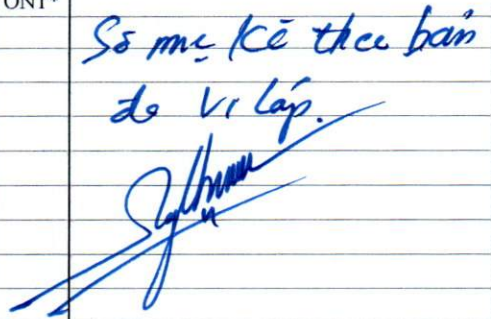 ONT
Số mẹ Kê theo bản
do Vi lập.